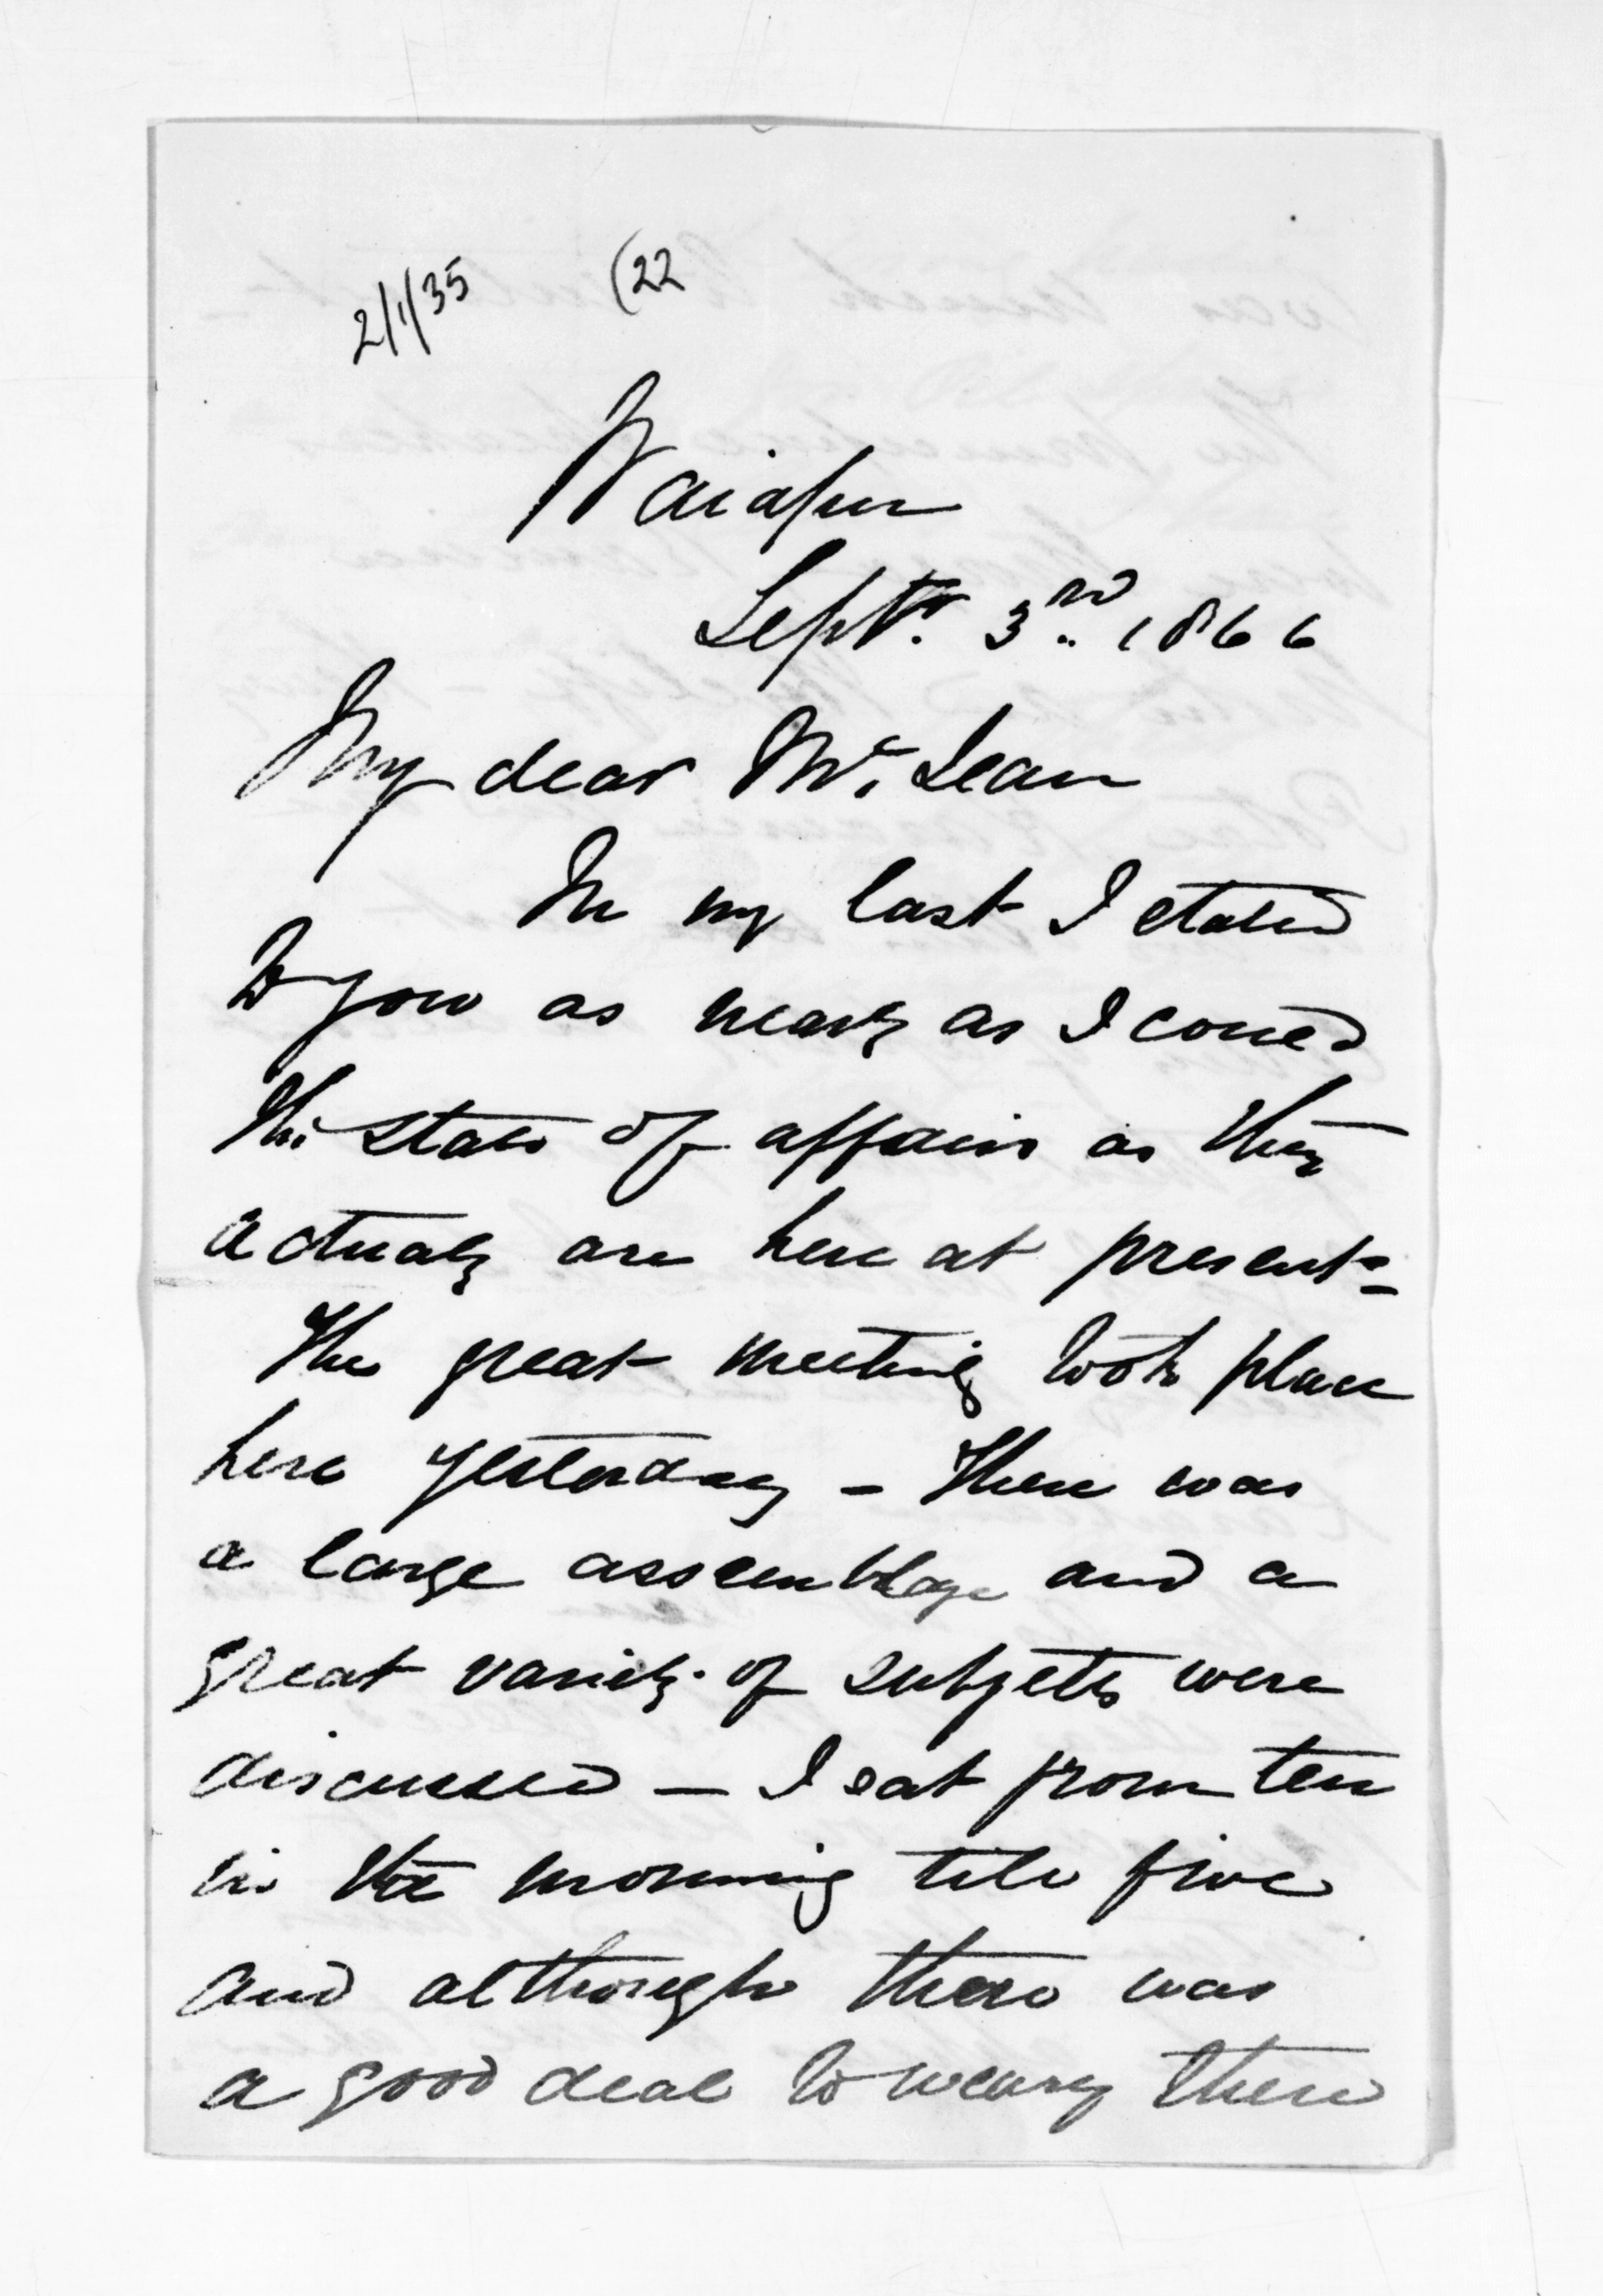 2/1/35 (22
Waiapu
Septr. 3rd. 1866
My dear McLean
In my last I stated
to you as nearly as I could
the state of affairs as they
actually are here at present -
The great meeting took place
here yesterday - There was
a large assemblage and a
great variety of subjets were
discussed - I sat from ten
in the morning till five
and although there was
a good deal to weary there